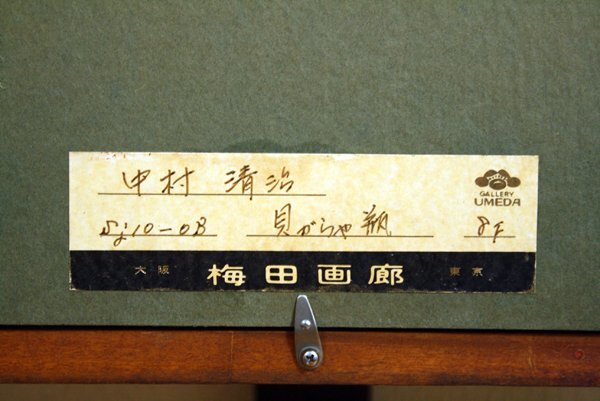 中村 清治
GALLERY
UMEDA
Sj10-08 貝がらや瓶 8F
大阪 梅田画廊 東京